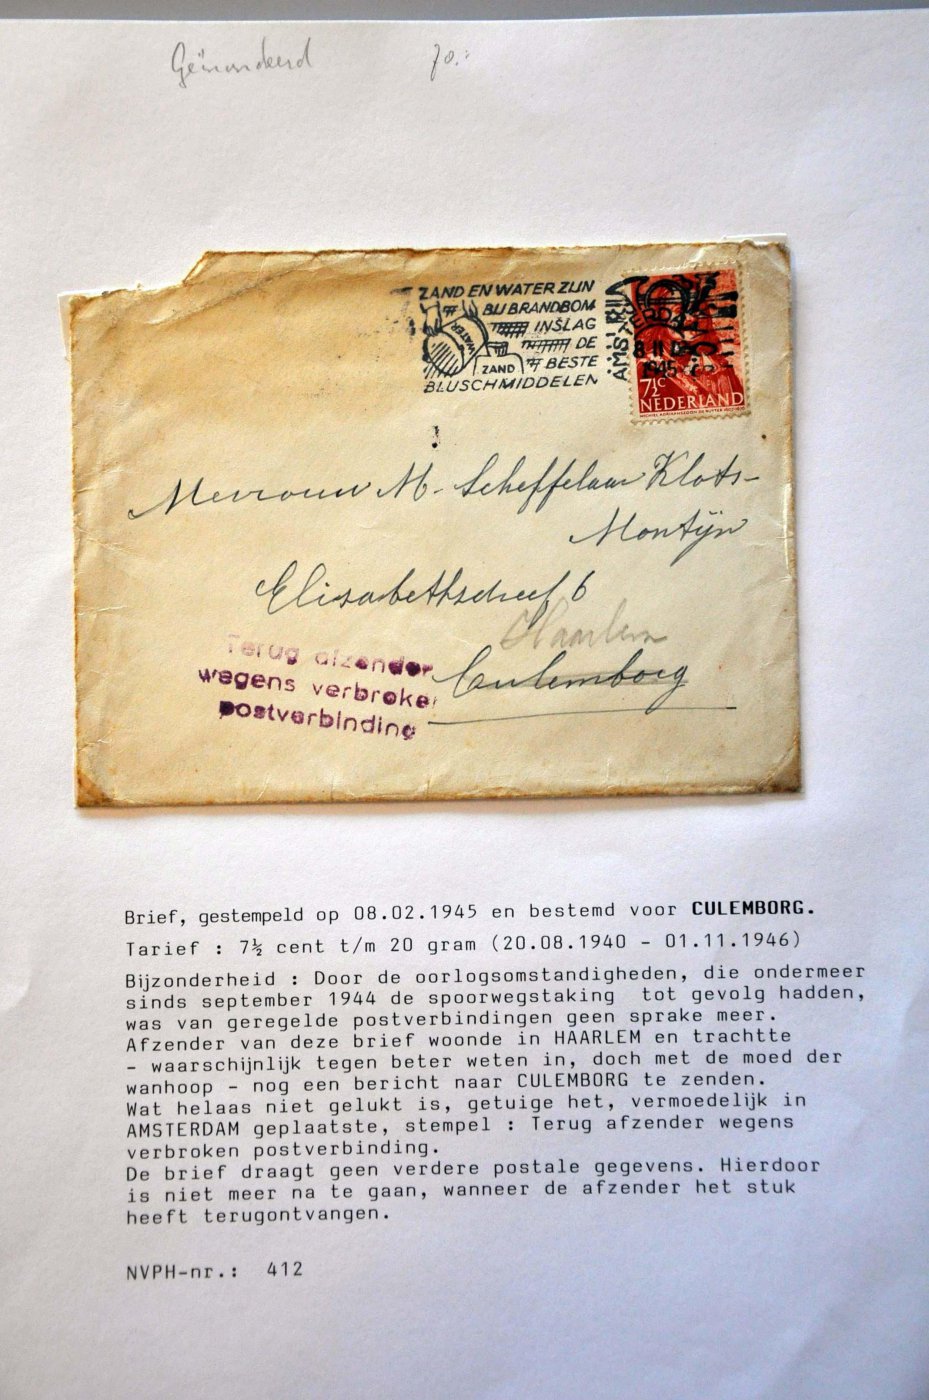 70.-
ZAND EN WATER ZIJN
BIJ BRANDBOM
INSLAG
DE
BESTE
BLUSCHMIDDELEN
WATER
ZAND
AMSTERDAM
8 II
1945
7½ C
NEDERLAND
MICHIEL ADRIAANSZOON DE RUYTER 1607-1676
Mevrouw M. Scheffelaar Klots-
Montijn
Elisabethschreef 6
Haarlem
Culemborg
Terug afzender
wegens verbroken
postverbinding
Brief, gestempeld op 08.02.1945 en bestemd voor CULEMBORG.
Tarief : 7½ cent t/m 20 gram (20.08.1940 - 01.11.1946)
Bijzonderheid : Door de oorlogsomstandigheden, die ondermeer
sinds september 1944 de spoorwegstaking tot gevolg hadden,
was van geregelde postverbindingen geen sprake meer.
Afzender van deze brief woonde in HAARLEM en trachtte
- waarschijnlijk tegen beter weten in, doch met de moed der
wanhoop - nog een bericht naar CULEMBORG te zenden.
Wat helaas niet gelukt is, getuige het, vermoedelijk in
AMSTERDAM geplaatste, stempel : Terug afzender wegens
verbroken postverbinding.
De brief draagt geen verdere postale gegevens. Hierdoor
is niet meer na te gaan, wanneer de afzender het stuk
heeft terugontvangen.
NVPH-nr.: 412